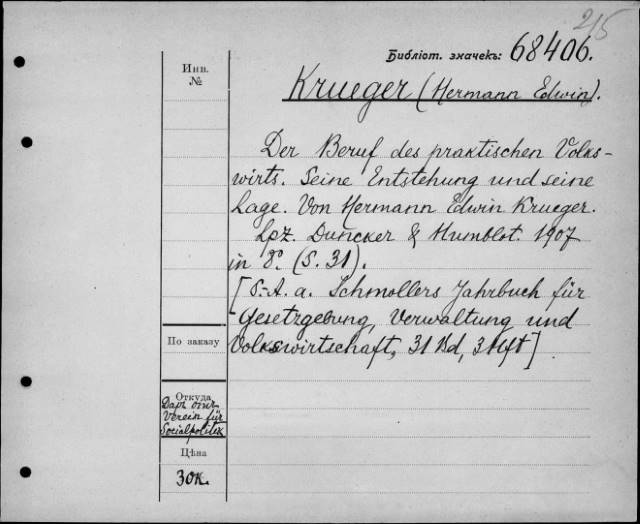 215
Библіот. значекъ: 68406.
Инв.
№
Krueger (Hermann Edwin).
Der Beruf des praktischen Volks-
wirts. Seine Entstehung und seine
Lage. Von Hermann Edwin Krueger.
Lpz. Duncker & Humblot. 1907
in 8º. (S. 31).
[S.-A. a. Schmollers Jahrbuch für
Gesetzgebung, Verwaltung und
Volkswirtschaft, 31 Bd, 3 Hft]
По заказу
Откуда
Даръ отъ
Verein für
Socialpolitik
Цѣна
30к.